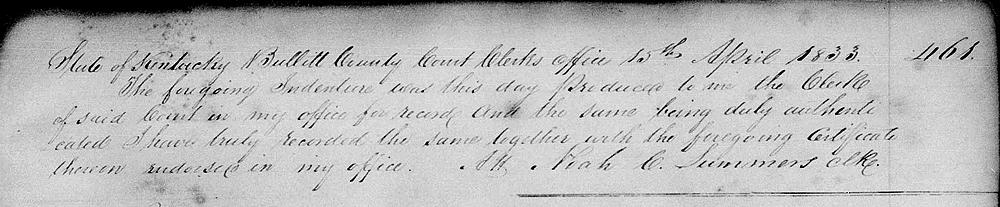 State of Kentucky Bullitt County Court Clerks office 15th April 1833. 461.
The foregoing Indenture was this day produced to me the Clerk
of said Court in my office for record and the same being duly authenti
cated I have truly recorded the same together with the foregoing Certificate
thereon endorsed in my office. Att Noah C. Summers Clk.